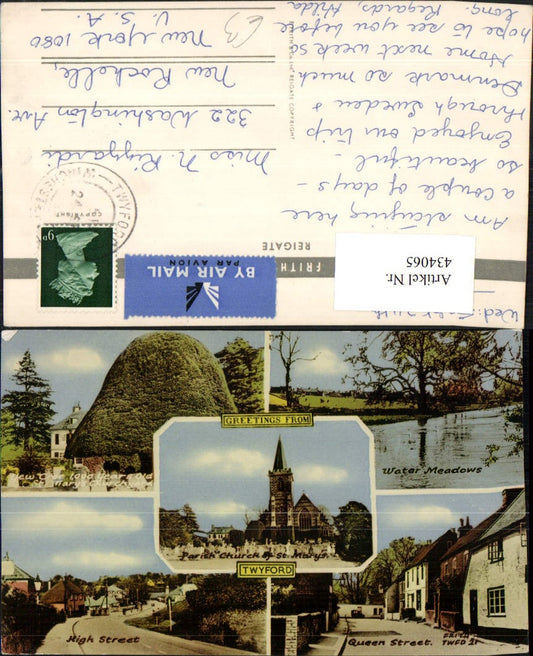 Wed:
Am staying here
a couple of days –
so beautiful –
Enjoyed our trip
through Sweden &
Denmark so much
Home next week so
hope to see you before
long. Regards, Hilda
FRITH
REIGATE
COPYRIGHT
BY AIR MAIL
PAR AVION
9D
TWYFORD
WINCHESTER
Miss N. Riggardi
322 Washington Ave.
New Rochelle,
New York 1080
U. S. A.
£3
Artikel Nr.
434065
GREETINGS FROM
Yew Tree 1000 Years Old
Water Meadows
Parish Church of St. Marys.
TWYFORD
High Street
Queen Street.
FRITH
TWFD 21